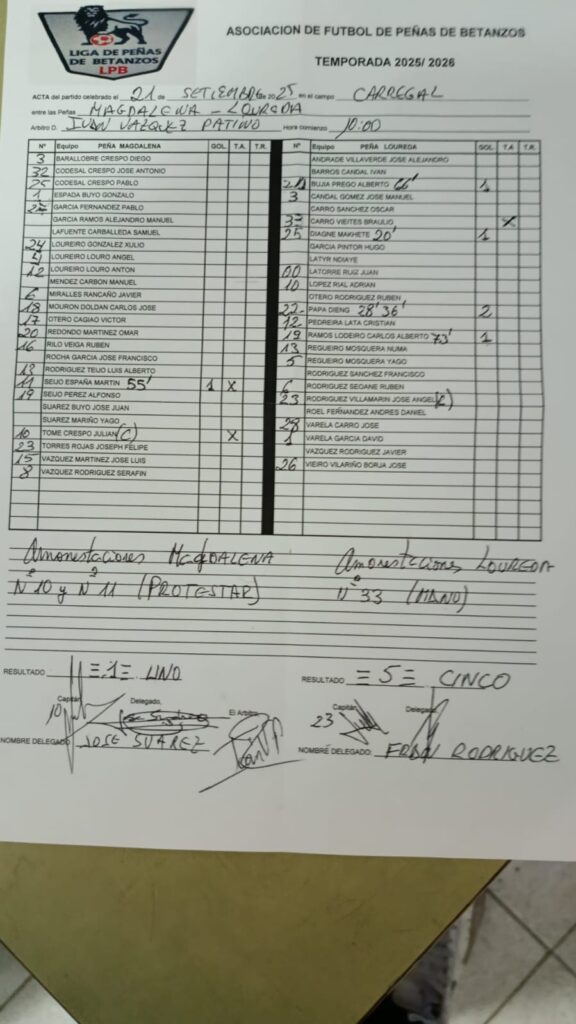 LIGA DE PEÑAS
DE BETANZOS
LPB
ASOCIACION DE FUTBOL DE PEÑAS DE BETANZOS
TEMPORADA 2025/ 2026
ACTA del partido celebrado el 21 de SETIEMBRE de 2025 en el campo CARREGAL
entre las Peñas MAGDALENA - LOUREDA
Arbitro D. IVAN VAZQUEZ PATIÑO Hora comienzo 10:00
Nº Equipo PEÑA MAGDALENA GOL. T.A. T.R.
3 BARALLOBRE CRESPO DIEGO
32 CODESAL CRESPO JOSE ANTONIO
25 CODESAL CRESPO PABLO
1 ESPADA BUYO GONZALO
27 GARCIA FERNANDEZ PABLO
GARCIA RAMOS ALEJANDRO MANUEL
LAFUENTE CARBALLEDA SAMUEL
24 LOUREIRO GONZALEZ XULIO
4 LOUREIRO LOURO ANGEL
12 LOUREIRO LOURO ANTON
MENDEZ CARBON MANUEL
6 MIRALLES RANCAÑO JAVIER
18 MOURON DOLDAN CARLOS JOSE
17 OTERO CAGIAO VICTOR
20 REDONDO MARTINEZ OMAR
16 RILO VEIGA RUBEN
ROCHA GARCIA JOSE FRANCISCO
13 RODRIGUEZ TEIJO LUIS ALBERTO
11 SEIJO ESPAÑA MARTIN 55' 1 X
19 SEIJO PEREZ ALFONSO
SUAREZ BUYO JOSE JUAN
SUAREZ MARIÑO YAGO
10 TOME CRESPO JULIAN (C) X
23 TORRES ROJAS JOSEPH FELIPE
15 VAZQUEZ MARTINEZ JOSE LUIS
8 VAZQUEZ RODRIGUEZ SERAFIN
Nº Equipo PEÑA LOUREDA GOL. T.A T.R.
ANDRADE VILLAVERDE JOSE ALEJANDRO
BARROS CANDAL IVAN
BUJIA PREGO ALBERTO 66' 1
3 CANDAL GOMEZ JOSE MANUEL
CARRO SANCHEZ OSCAR
33 CARRO VIEITES BRAULIO X
25 DIAGNE MAKHETE 20' 1
GARCIA PINTOR HUGO
LATYR NDIAYE
00 LATORRE RUIZ JUAN
10 LOPEZ RIAL ADRIAN
OTERO RODRIGUEZ RUBEN
22 PAPA DIENG 28' 36' 2
12 PEDREIRA LATA CRISTIAN
19 RAMOS LODEIRO CARLOS ALBERTO 73' 1
13 REGUEIRO MOSQUERA NUMA
5 REGUEIRO MOSQUERA YAGO
RODRIGUEZ SANCHEZ FRANCISCO
6 RODRIGUEZ SEOANE RUBEN
23 RODRIGUEZ VILLAMARIN JOSE ANGEL (C)
ROEL FERNANDEZ ANDRES DANIEL
28 VARELA CARRO JOSE
1 VARELA GARCIA DAVID
VAZQUEZ RODRIGUEZ JAVIER
26 VIEIRO VILARIÑO BORJA JOSE
Amonestaciones MAGDALENA
Nº 10 y Nº 11 (PROTESTAR)
Amonestaciones LOUREDA
Nº 33 (MANO)
RESULTADO =1= UNO
Capitán, Delegado, El Arbitro
10
NOMBRE DELEGADO: JOSE SUAREZ
RESULTADO: =5= CINCO
Capitán, Delegado,
23
NOMBRE DELEGADO: FRAN RODRIGUEZ